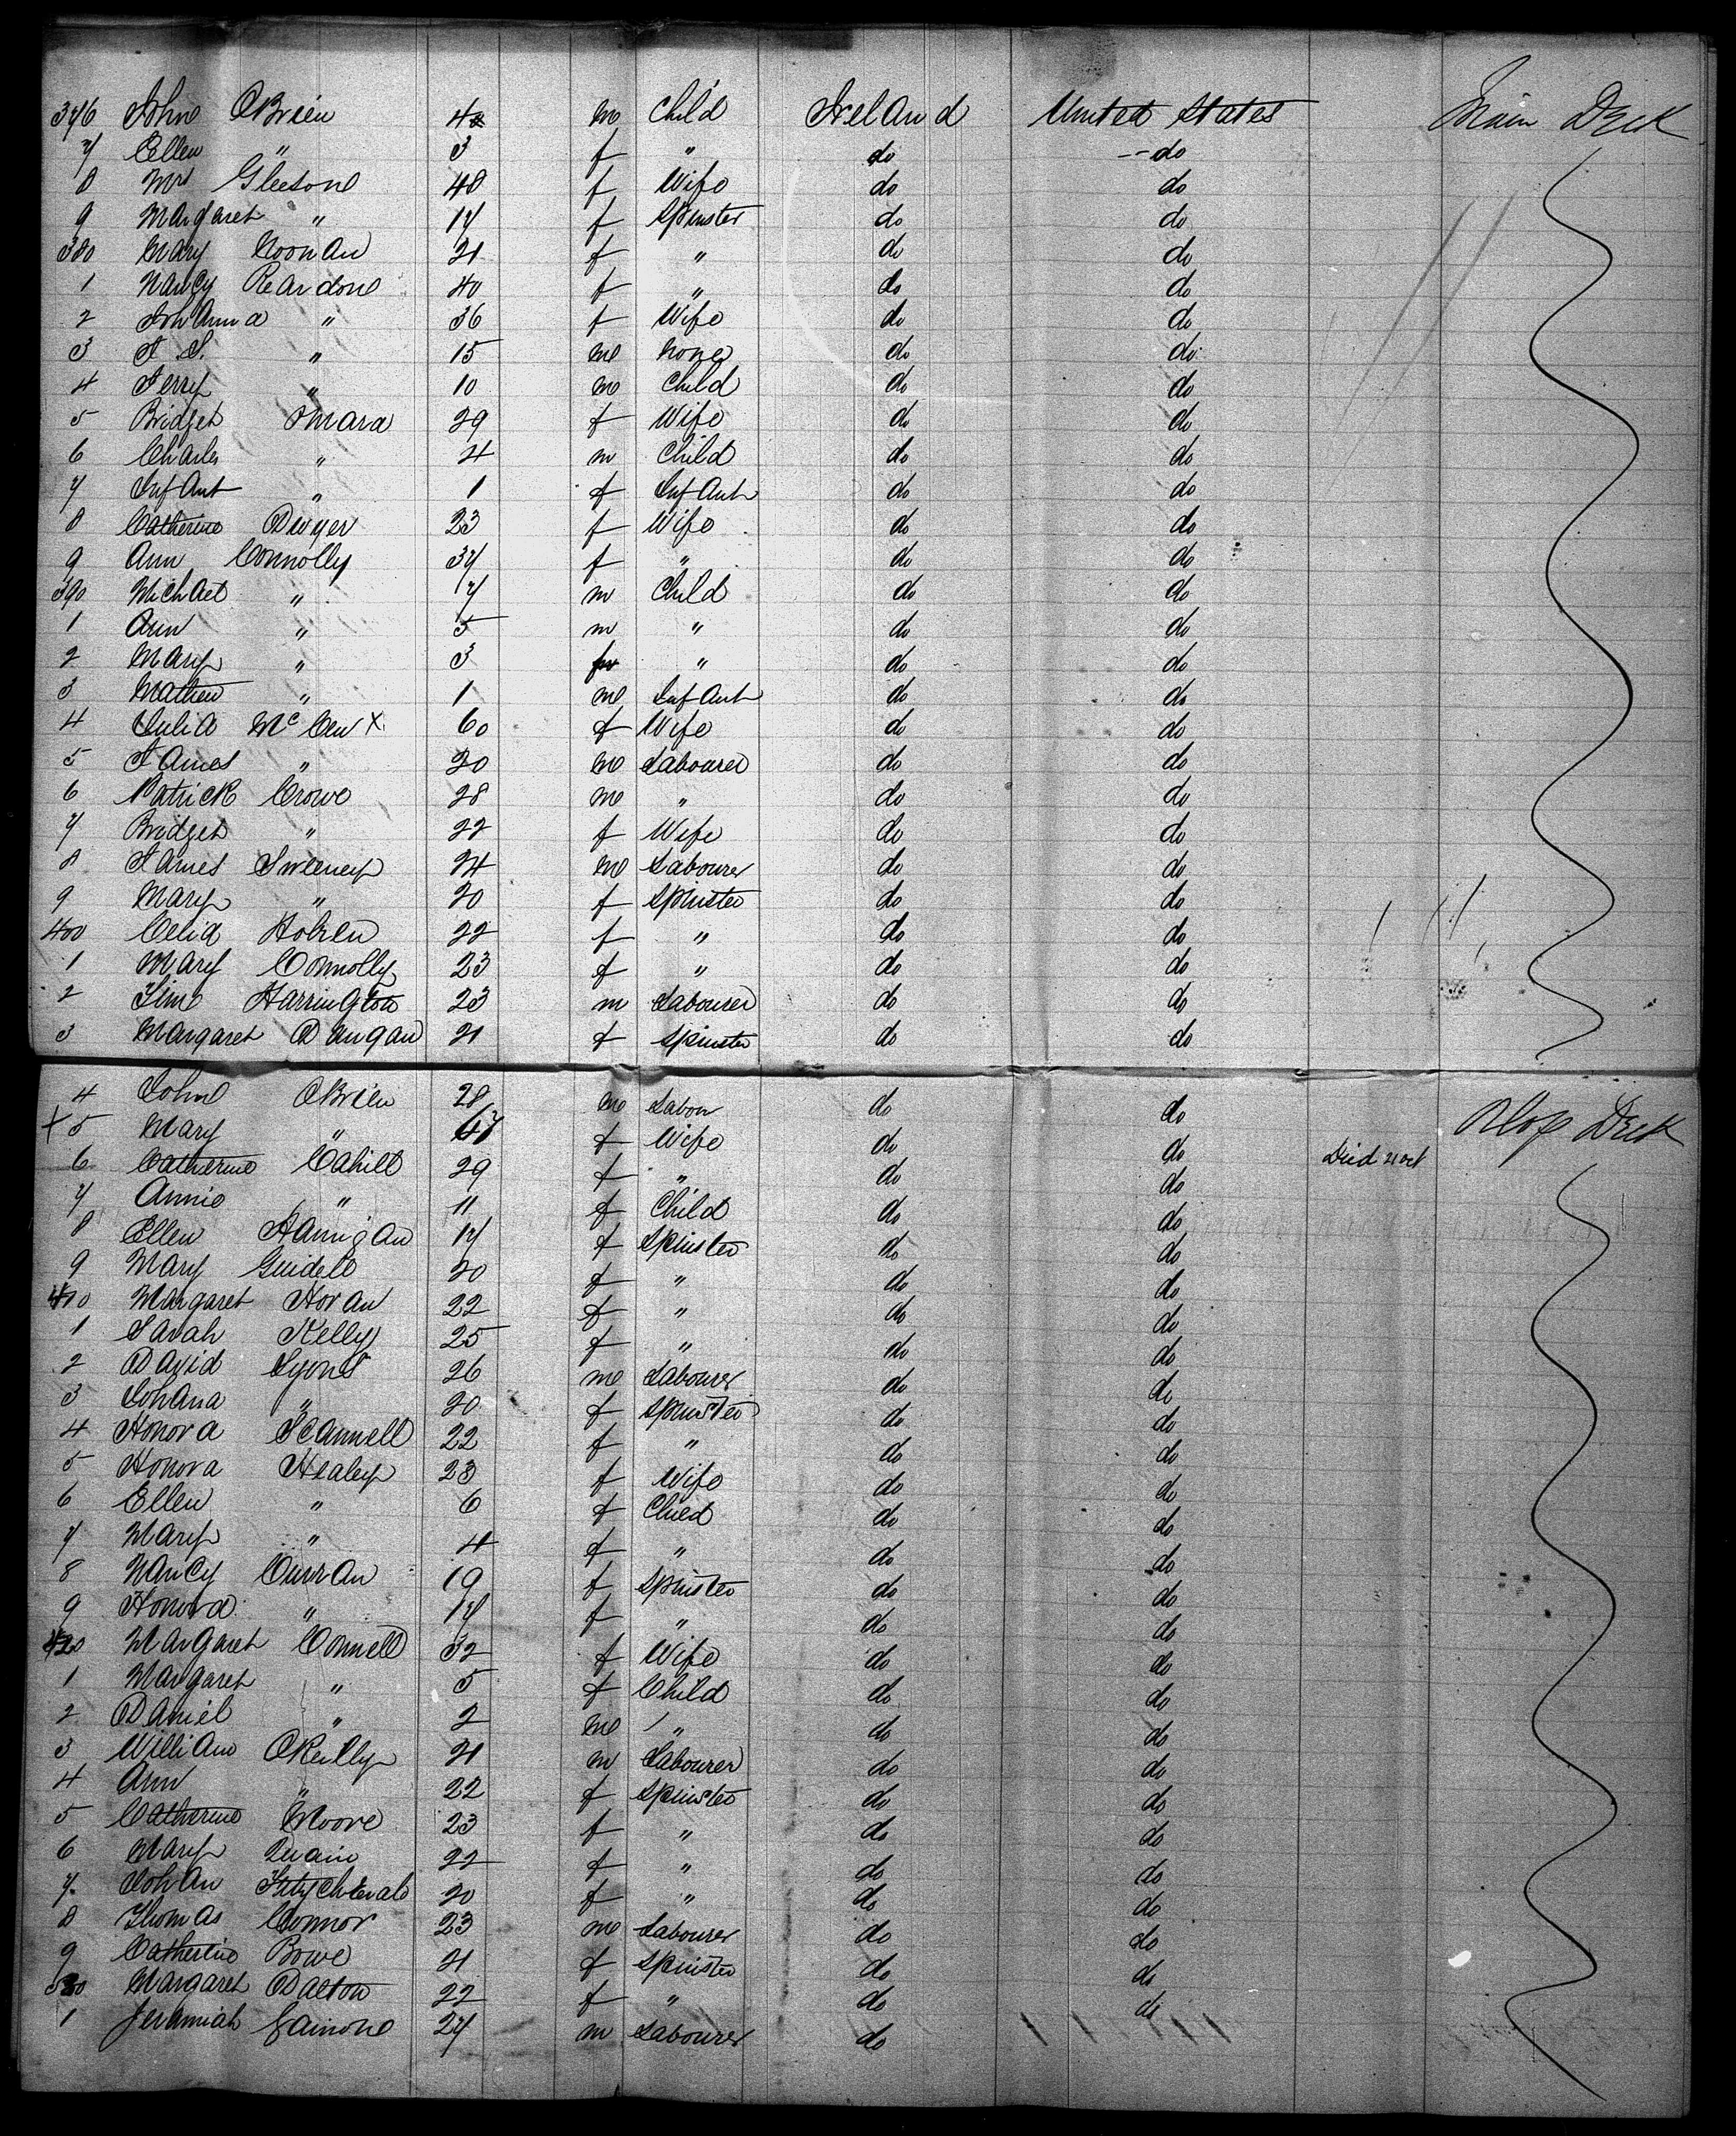 376 John OBrien 4 m Child Ireland United States Main Deck
7 Ellen " 3 f " do do
8 Mrs Gleeson 40 f Wife do do
9 Margaret " 17 f Spinster do do
380 Mary Noonan 21 f " do do
1 Nancy Reardon 40 f " do do
2 Johanna " 36 f Wife do do
3 " 15 m None do do
4 Jerry " 10 m Child do do
5 Bridget OMara 29 f Wife do do
6 Charles " 4 m Child do do
7 Infant " 1 f Infant do do
8 Catherine Dwyer 23 f Wife do do
9 Ann Connolly 37 f " do do
390 Michael " 7 m Child do do
1 Ann " 5 m " do do
2 Mary " 3 " do do
3 Mathew " 1 m Infant do do
4 Julia Mc 60 f Wife do do
5 James " 20 m Labourer do do
6 Patrick Crowe 28 m " do do
7 Bridget " 22 f Wife do do
8 James Sweeney 24 m Labourer do do
9 Mary " 20 f Spinster do do
400 Celia 22 f " do do
1 Mary Connolly 23 f " do do
2 Tim Harrington 23 m Labourer do do
3 Margaret Dungan 21 f Spinster do do
4 John OBrien 28 m Labour do do Slop Deck
X 5 Mary " f Wife do do Died 21 Oct
6 Catherine Cahill 29 f " do do
7 Annie " 11 f Child do do
8 Ellen Hannigan 17 f Spinster do do
9 Mary 20 f " do do
410 Margaret Horan 22 f " do do
1 Sarah Kelly 25 f " do do
2 David Lyons 26 m Labourer do do
3 Johana " 20 f Spinster do do
4 Honora Scannell 22 f " do do
5 Honora Healey 23 f Wife do do
6 Ellen " 6 f Child do do
7 Mary " 4 f " do do
8 Nancy Curran 19 f Spinster do do
9 Honora " 17 f " do do
420 Margaret Connell 32 f Wife do do
1 Margaret " 5 f Child do do
2 Daniel " 2 m " do do
3 William OReilly 21 m Labourer do do
4 Ann " 22 f Spinster do do
5 Catherine Moore 23 f " do do
6 Mary Quain 22 f " do do
7 Johan 20 f " do do
8 Thomas Connor 23 m Labourer do do
9 Catherine Bowe 21 f Spinster do do
Margaret Dalton 22 f " do do
1 Jeremiah 27 m Labourer do